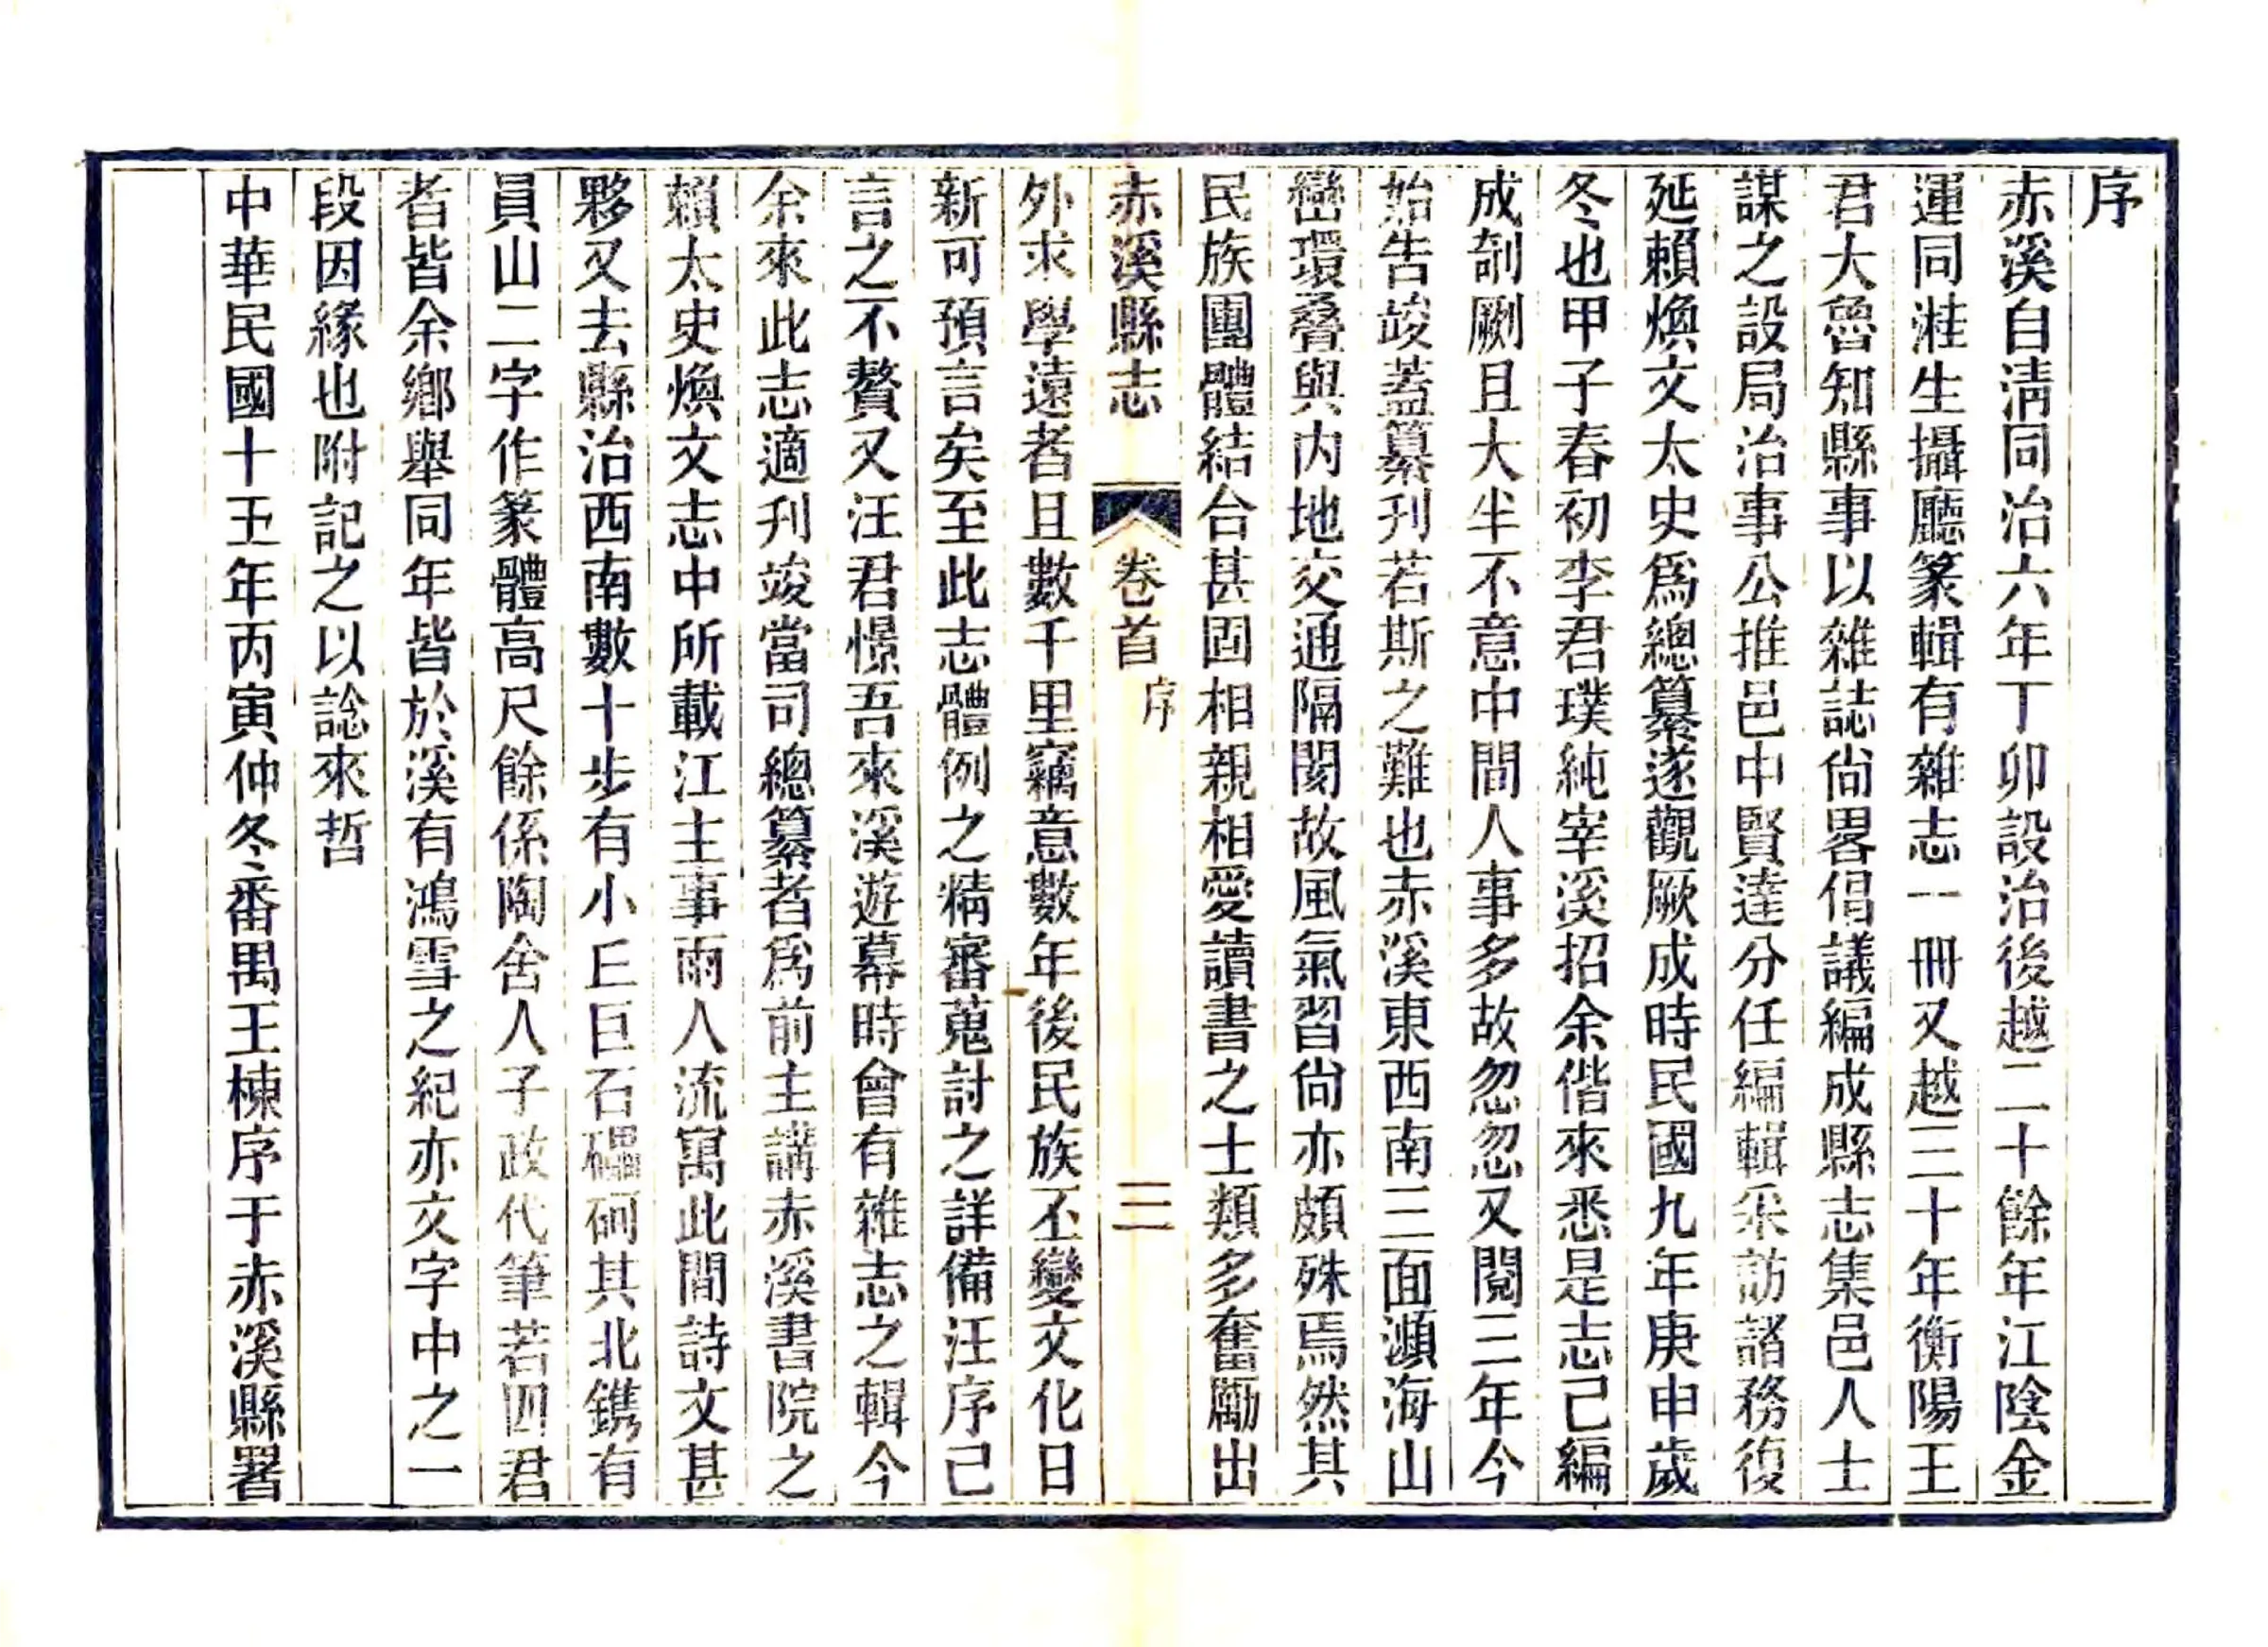 序
赤溪自淸同治六年丁卯設治後越二十餘年江陰金
運同溎生攝廳篆輯有雜志一冊又越三十年衡陽王
君大魯知縣事以雜誌尙畧倡議編成縣志集邑人士
謀之設局治事公推邑中賢達分任編輯采訪諸務復
延賴煥文太史爲總纂遂觀厥成時民國九年庚申歲
冬也甲子春初李君璞純宰溪招余偕來悉是志己編
成剞劂且大半不意中間人事多故忽忽又閱三年今
始告竣蓋纂刋若斯之難也赤溪東西南三面瀕海山
巒環叠與內地交通隔閡故風氣習尙亦頗殊焉然其
民族團體結合甚固相親相愛讀書之士類多奮勵出
赤溪縣志 卷首 序 三
外求學遠者且數千里竊意數年後民族丕變文化日
新可預言矣至此志體例之精審蒐討之詳備汪序己
言之不贅又汪君憬吾來溪遊幕時曾有雜志之輯今
余來此志適刋竣當司總纂者爲前主講赤溪書院之
賴太史煥文志中所載江主事雨人流寓此間詩文甚
夥又去縣治西南數十步有小丘巨石礧砢其北鐫有
員山二字作篆體高尺餘係陶舍人子政代筆若四君
者皆余鄉舉同年皆於溪有鴻雪之紀亦文字中之一
段因緣也附記之以諗來哲
中華民國十五年丙寅仲冬番禺王棟序于赤溪縣署